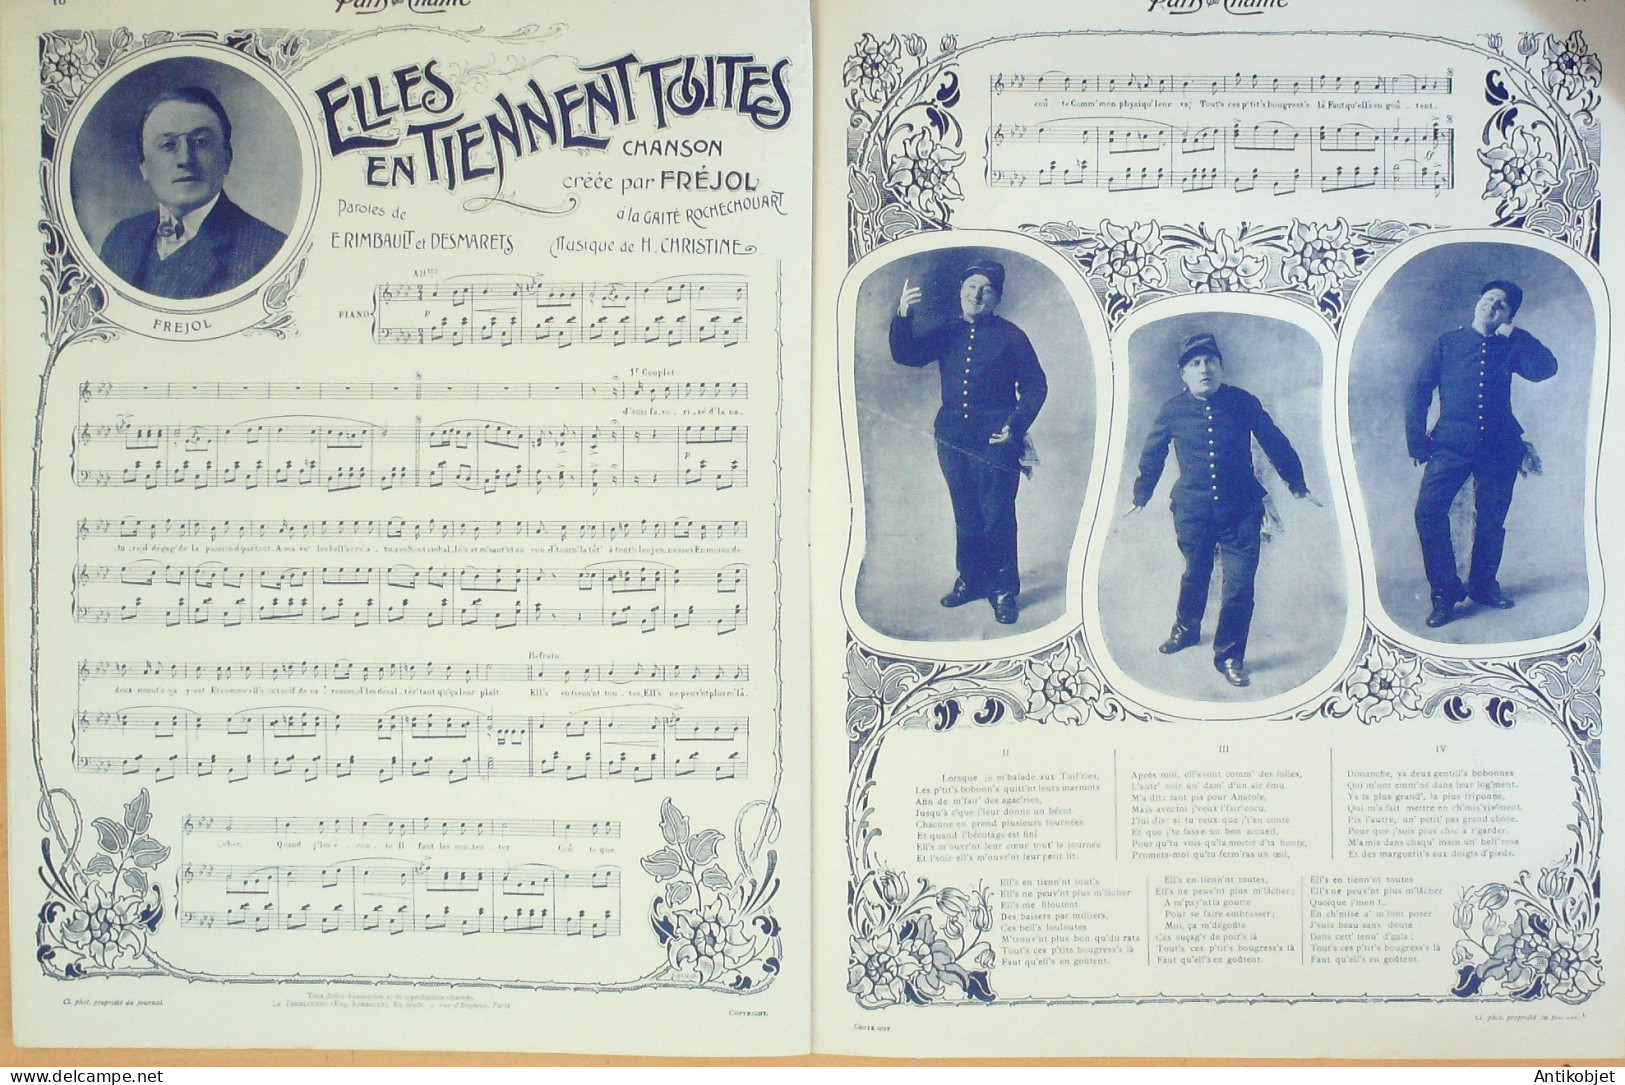 Paris qui Chante
ELLES
EN TIENNENT TOUTES
CHANSON
créée par FRÉJOL
à la GAITÉ ROCHECHOUART
Paroles de
E. RIMBAULT et DESMARETS
Musique de H. CHRISTINE
FREJOL
All tto
PIANO
p
1r Couplet
d'suis fa.vo. ri. sé d'la na.
.tu.re,d'dégag' de la passion d'partout. A ma vu' les bell's cré.a. tu.res Sont embal.lé's et m'saut'nt au cou, d'tourn' la têt' à tout's les jeu.nesses En moins de
deux minut's ça y est Et comme ell's ont soif de ca. resses, d'les désal. tèr' tant qu'ça leur plaît.
Refrain
Ell's en tienn'nt tou.tes, Ell's ne peuv'nt plus m'lâ.
.cher. Quand j'les é. cou. te Il faut les con.ten. ter Coû te que
Cl. phot. propriété du journal.
Tous droits d'exécution et de reproduction réservés.
COPYRIGHT.
Paris qui Chante
coû. te Comm' mon physiqu' leur va; Tout's ces p'tit's bougress's là Faut qu'ell's en goû. tent.
ff
II
Lorsque je m'balade aux Tuil'ries,
Les p'tit's bobonn's quitt'nt leurs marmots
Afin de m'fair' des agac'ries,
Jusqu'à c'que j'leur donne un bécot
Chacune en prend plusieurs tournées
Et quand l'bécotage est fini
Ell's m'ouvr'nt leur cœur tout' la journée
Et l'soir ell's m'ouvr'nt leur petit lit.
Ell's en tienn'nt tout's
Ell's ne peuv'nt plus m'lâcher
Ell's me filoutent
Des baisers par milliers,
Ces bell's louloutes
M'trouv'nt plus bon qu'du rata
Tout's ces p'tit's bougress's là
Faut qu'ell's en goûtent.
III
Après moi, ell's sont comm' des folles,
L'autr' soir un' dam' d'un air ému
M'a dit: tant pis pour Anatole,
Mais avec toi j'veux l'fair' cocu.
J'lui dis: si tu veux que j't'en conte
Et que j'te fasse un bon accueil,
Pour qu'tu vois qu'la moitié d'ta honte,
Promets-moi qu'tu ferm'ras un œil,
Ell's en tienn'nt toutes,
Ell's ne peuv'nt plus m'lâcher;
A m'pay'nt la goutte
Pour se faire embrasser;
Moi, ça m'dégoûte
Ces suçag's de poir's là
Tout's ces p'tit's bougress's là
Faut qu'ell's en goûtent.
IV
Dimanche, ya deux gentill's bobonnes
Qui m'ont emm'né dans leur log'ment.
Ya la plus grand', la plus friponne,
Qui m'a fait mettre en ch'mis' viv'ment.
Pis l'autre, un' petit' pas grand chose,
Pour que j'sois plus chic à r'garder,
M'a mis dans chaqu' main un' bell' rose
Et des marguerit's aux doigts d'pieds.
Ell's en tienn'nt toutes
Ell's ne peuv'nt plus m'lâcher
Quoique j'men f..
En ch'mise a' m'font poser
J'suis beau sans doute
Dans cett' tenu' d'gala;
Tout's ces p'tit's bougress's là
Faut qu'ell's en goûtent.
COPYRIGHT
Antikobjet